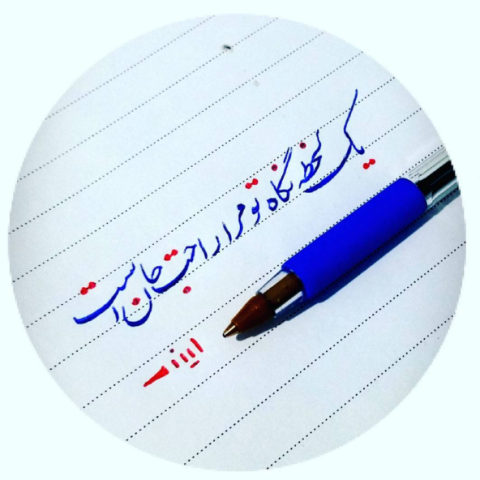 یک لحظه نگاه تو مرا راحت جان است